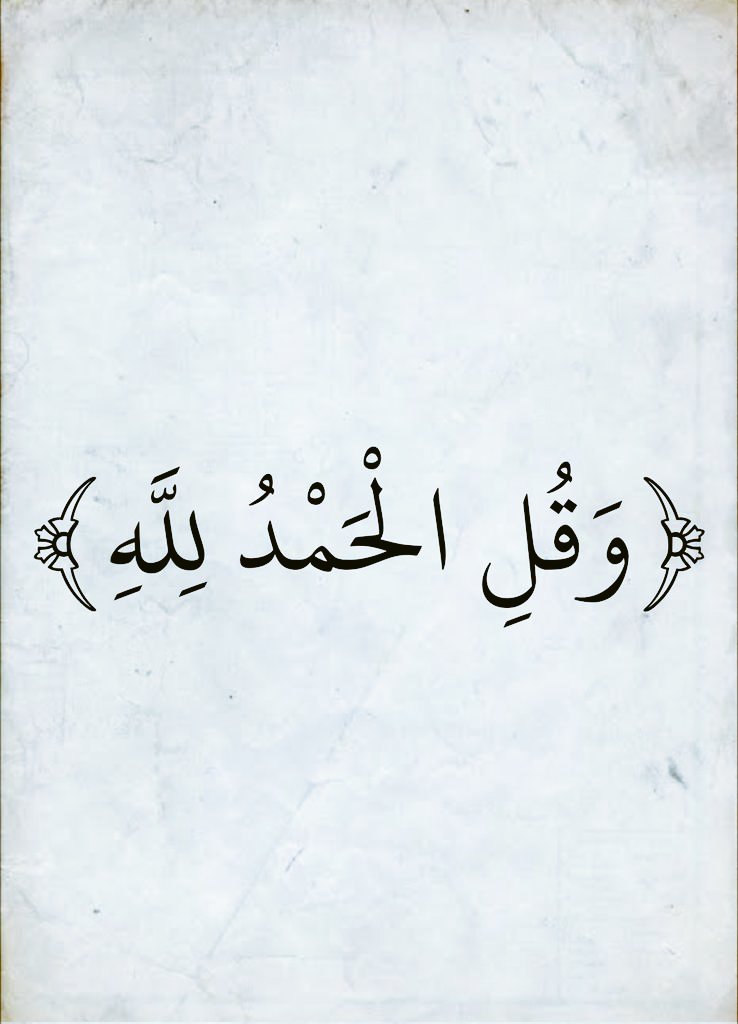 ﴿ وَقُلِ الْحَمْدُ لِلَّهِ ﴾